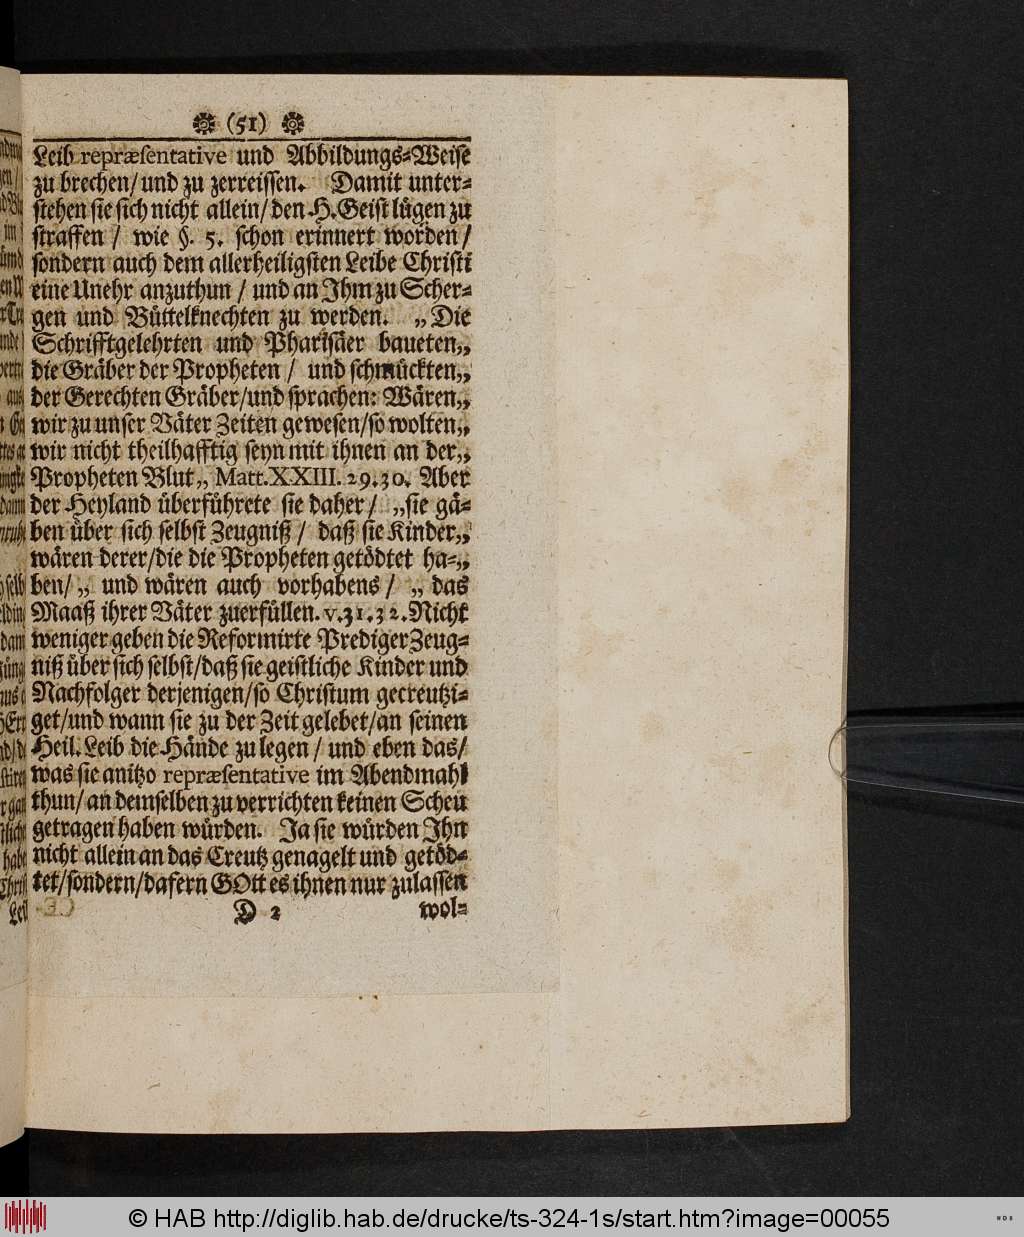 (51)
Leib repræſentative und Abbildungs-Weiſe
zu brechen/ und zu zerreiſſen. Damit unter-
ſtehen ſie ſich nicht allein/ den H. Geiſt lügen zu
ſtraffen / wie §. 5. ſchon erinnert worden/
ſondern auch dem allerheiligſten Leibe Chriſti
eine Unehr anzuthun / und an Ihm zu Scher-
gen und Büttelknechten zu werden. „Die
Schrifftgelehrten und Phariſäer baueten„
die Gräber der Propheten / und ſchmückten„
der Gerechten Gräber/und ſprachen: Wären„
wir zu unſer Väter Zeiten geweſen/ſo wolten„
wir nicht theilhafftig ſeyn mit ihnen an der„
Propheten Blut„ Matt. XXIII. 29. 30. Aber
der Heyland überführete ſie daher / „ſie gä-
ben über ſich ſelbſt Zeugniß / daß ſie Kinder„
wären derer/die die Propheten getödtet ha-„
ben/„ und wären auch vorhabens / „ das
Maaß ihrer Väter zuerfüllen. v. 31. 32. Nicht
weniger geben die Reformirte Prediger Zeug-
niß über ſich ſelbſt/daß ſie geiſtliche Kinder und
Nachfolger derjenigen/ſo Chriſtum gecreutzi-
get/und wann ſie zu der Zeit gelebet/an ſeinen
Heil. Leib die Hände zu legen / und eben das/
was ſie anitzo repræſentative im Abendmahl
thun/ an demſelben zu verrichten keinen Scheu
getragen haben würden. Ja ſie würden Ihn
nicht allein an das Creutz genagelt und getöd-
tet/ſondern/dafern GOtt es ihnen nur zulaſſen
D 2 wol-
© HAB http://diglib.hab.de/drucke/ts-324-1s/start.htm?image=00055